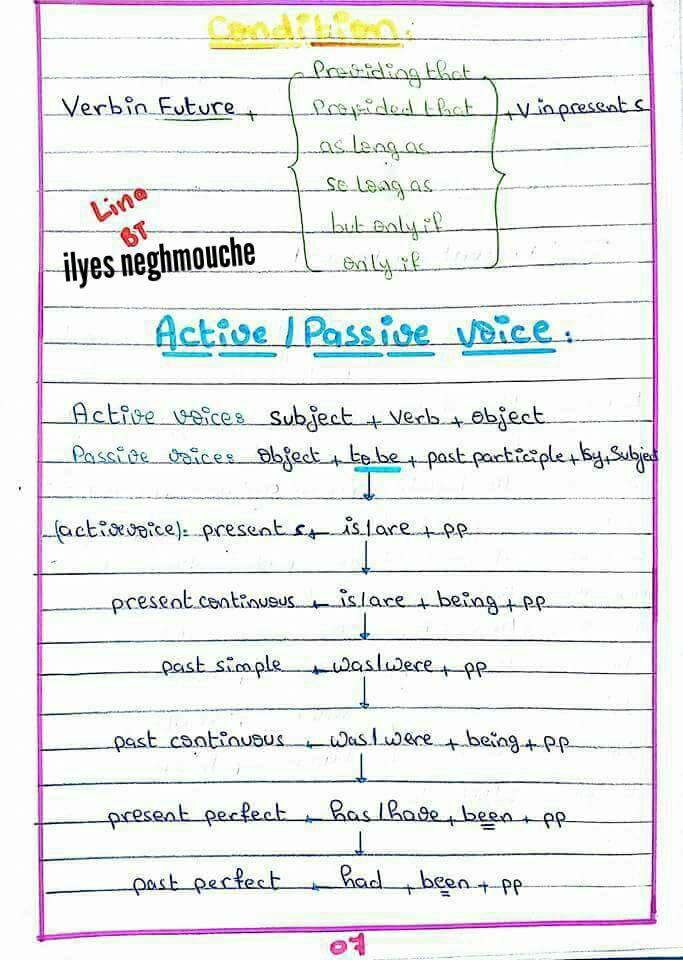 Condition:
Providing that
Verb in Future + Provided that + V in present s
as long as
so long as
Lina
but only if
BT
ilyes neghmouche
only if
Active / Passive voice:
Active voice: subject + verb + object
Passive voice: object + to be + past participle + by + Subject
(active voice): present s ← is/are + pp
present continuous ← is/are + being + pp
past simple ← was/were + pp
past continuous ← was/were + being + pp
present perfect ← has/have + been + pp
past perfect ← had + been + pp
07